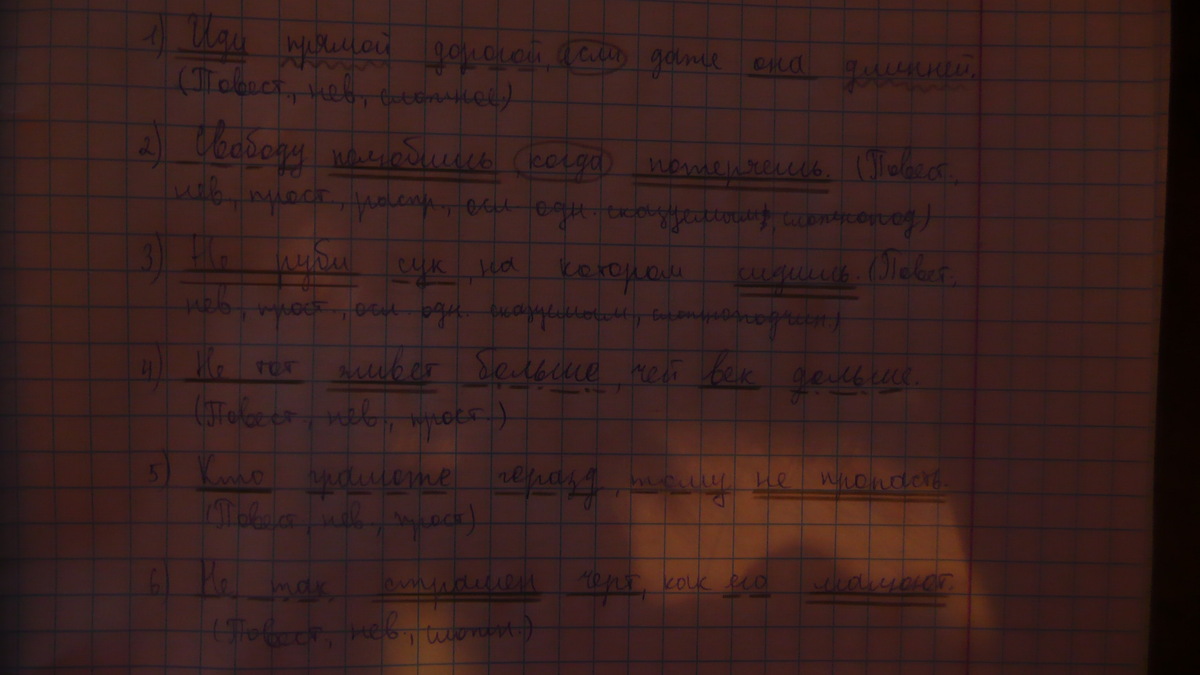 1) Иди прямой дорогой, если даже она длинней.
(Повест., нев., сложное)
2) Свободу полюбишь когда потеряешь. (Повест.,
нев., прост., распр., осл. одн. сказуемым, сложнопод)
3) Не руби сук, на котором сидишь. (Повест,
нев., прост., осл. одн. сказуемым, сложноподчин.)
4) Не тот живет больше, чей век дольше.
(Повест., нев., прост.)
5) Кто грамоте горазд, тому не пропасть.
(Повест., нев., прост)
6) Не так страшен черт, как его малюют.
(Повест., нев., сложн.)